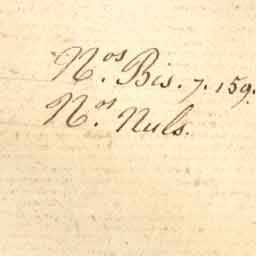 Nos. Bis. 7. 159.
Nos. Nuls.